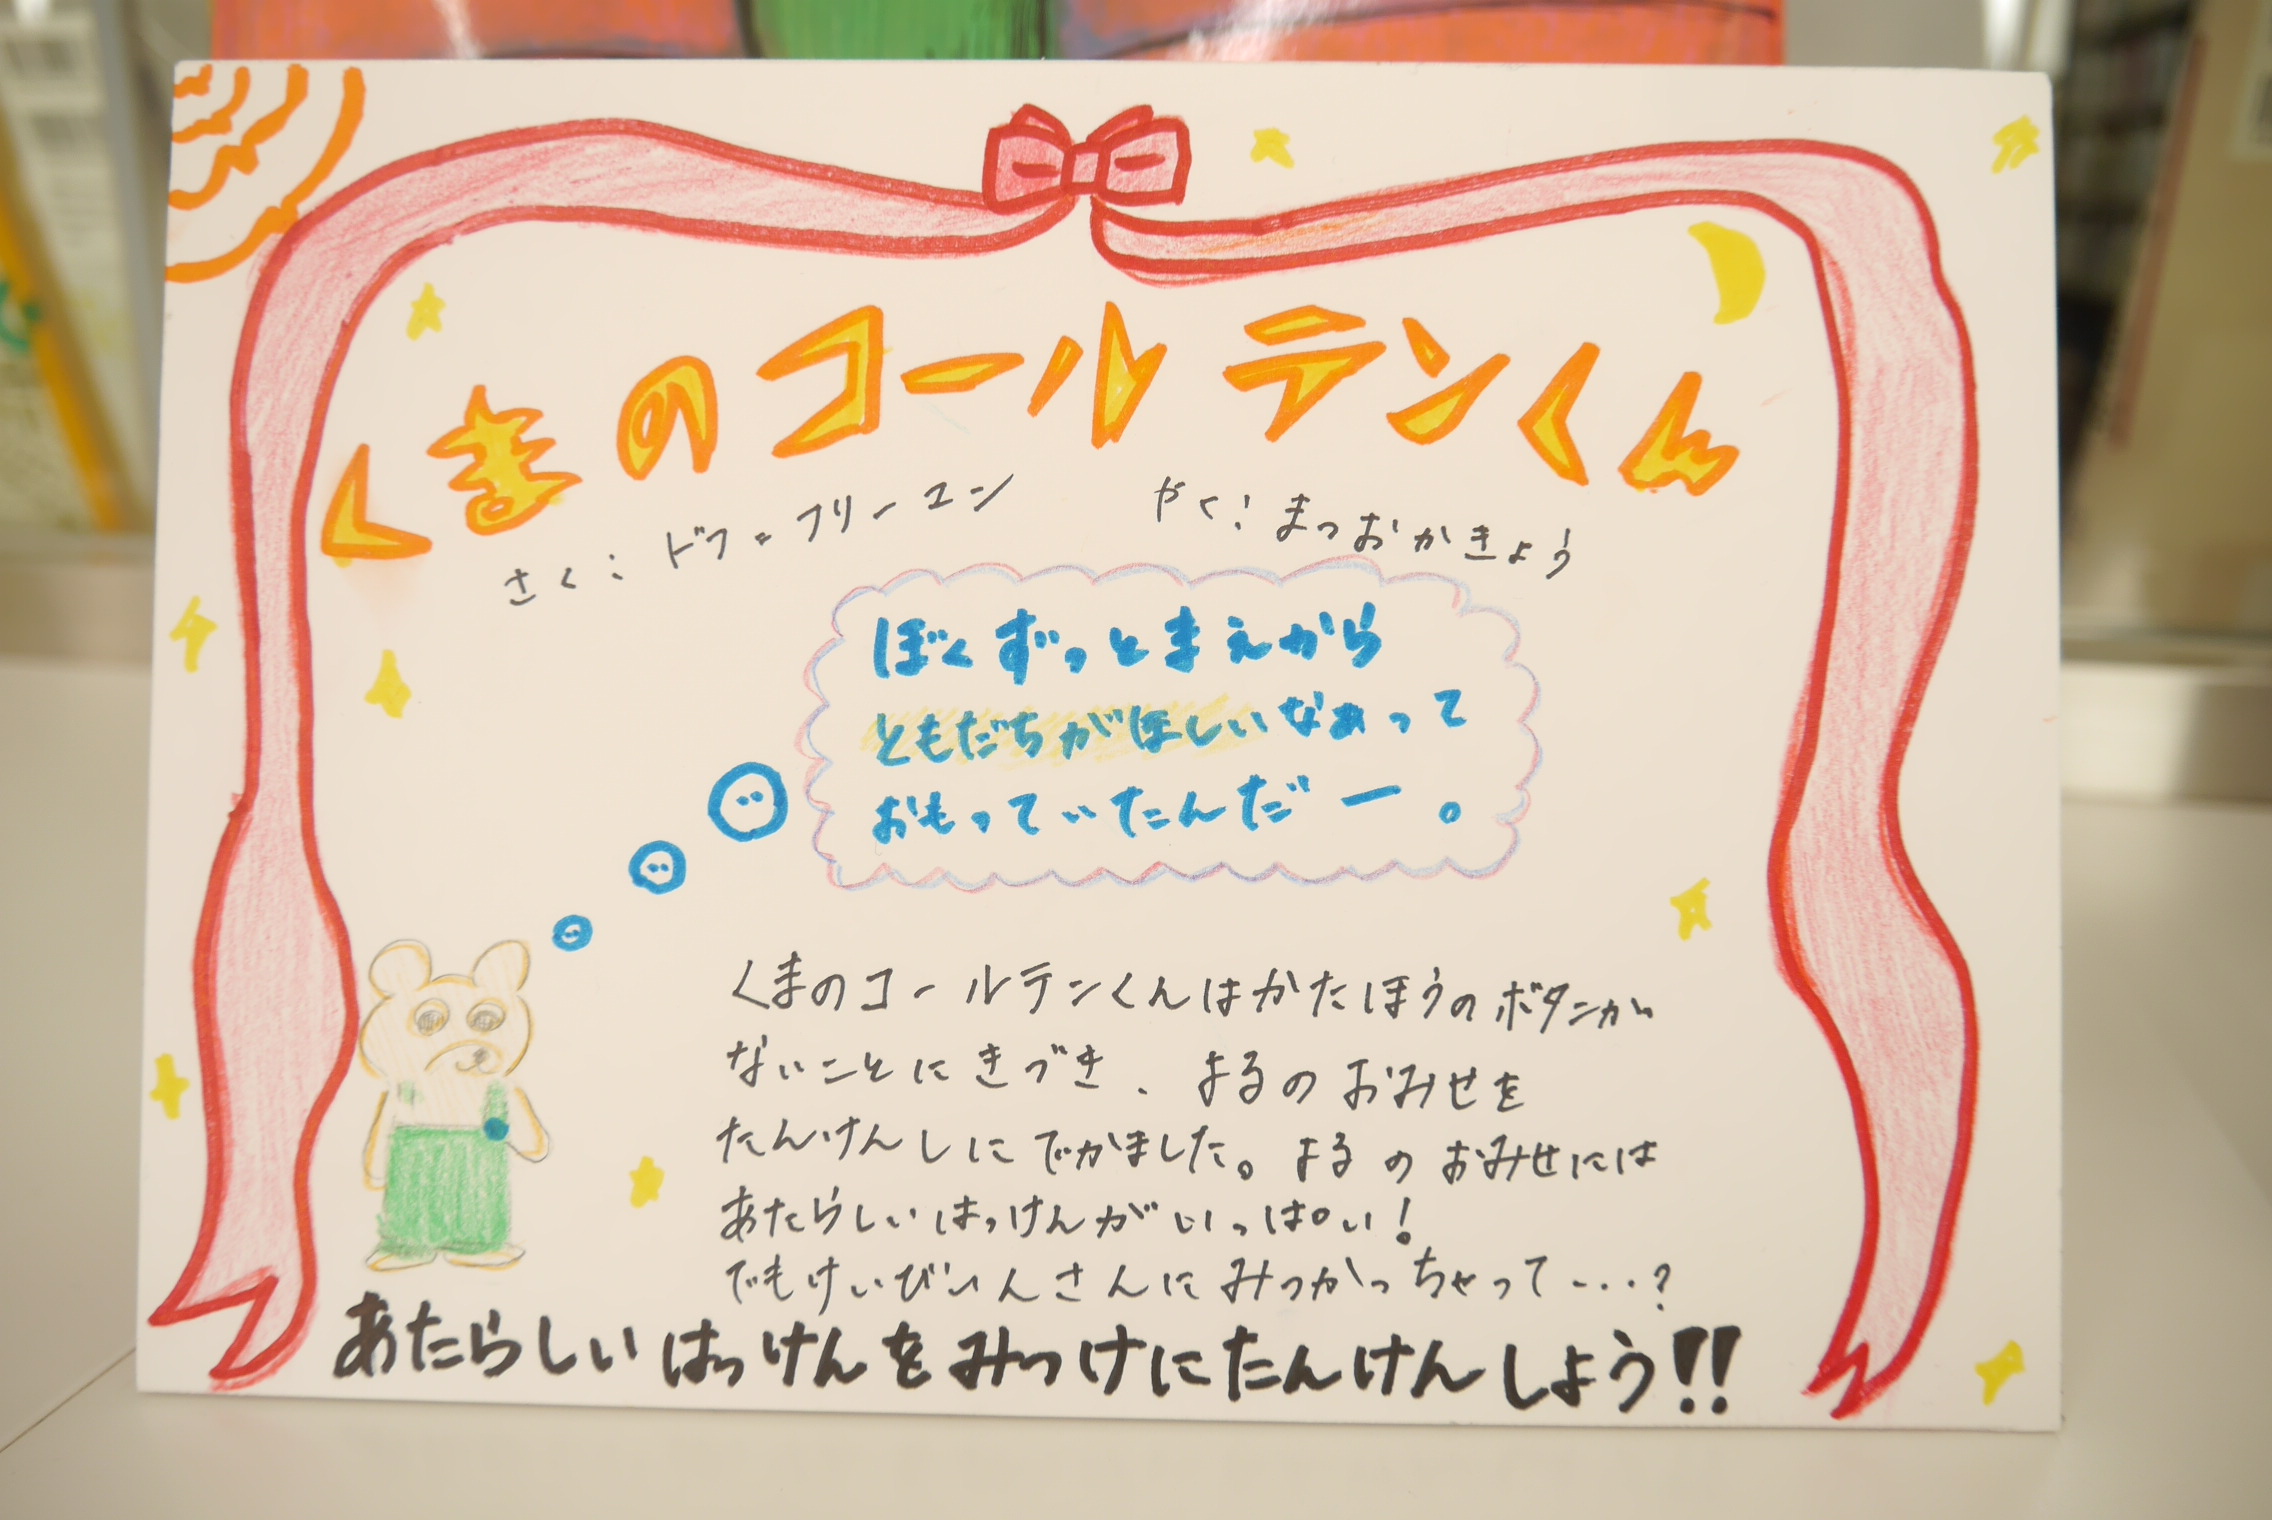 くまのコールテンくん
さく：ドン・フリーマン やく：まつおかきょう
ぼくずっとまえから
ともだちがほしいなぁって
おもっていたんだー。
くまのコールテンくんはかたほうのボタンが
ないことにきづき、よるのおみせを
たんけんしにでかました。よるのおみせには
あたらしいはっけんがいっぱい！
でもけいびいんさんにみつかっちゃって・・・？
あたらしいはっけんをみつけにたんけんしよう!!